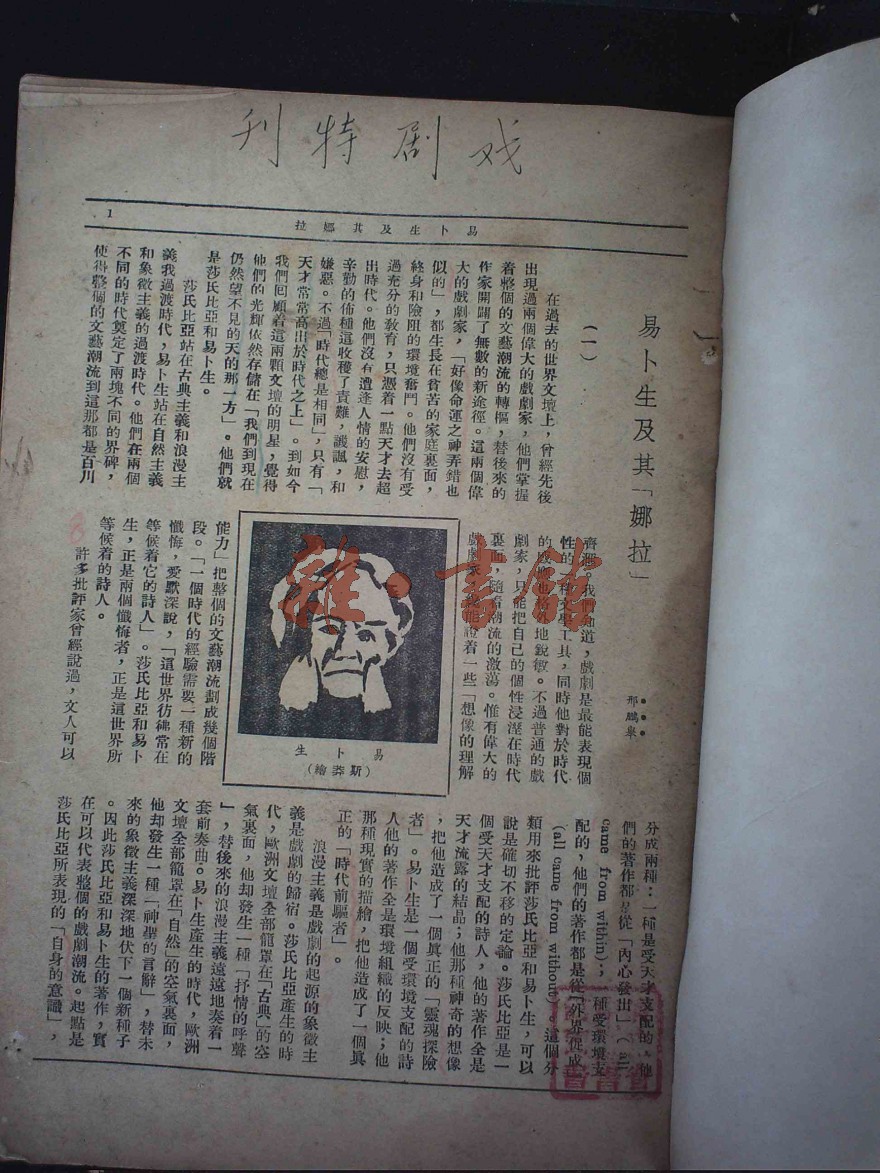 戏剧特刊
易卜生及其娜拉
1
易卜生及其「娜拉」
邢鵬舉
(一)
在過去的世界文壇上，曾經先後
出現過兩個偉大的戲劇家，他們掌握
着整個的文藝潮流的轉樞，替後來的
作家開闢了無數的新途徑。這兩個偉
大的戲劇家，「好像命運之神弄錯也
似的」，都生長在貧苦的家庭裏面，
終身和險阻的環境奮鬥。他們沒有受
過充分的敎育，只憑着一點天才去超
出時代。他們沒有遭逢人情的安慰，
辛勤的佈種這收穫了責難，譏諷，和
嫌惡。不過「時代總是相同」，只有「
天才常常高出於時代之上」。到如今
我們囘顧着這兩顆文壇的明星，覺得
他們的光輝依然存儲在「我們到現在
仍然望不見的天的那一方」。他們就
是莎氏比亞和易卜生。
莎氏比亞站在古典主義和浪漫主
義我過渡時代，易卜生站在自然主義
和象徵主義的過渡時代。他們在兩個
不同的時代奠定了兩塊不同的界碑，
使得整個的文藝潮流到這那都是百川
我們知道，戲劇是最能表現個
性的一種文學工具，同時他對於時代
的感應也格外地銳敏。不過普通的戲
劇家，只能把自己的個性浸溼在時代
裏面，隨着潮流的激蕩。惟有偉大的
戲劇家，纔能證着一些「想像的理解
易卜生
(斯莽繪)
能力」把整個的文藝潮流劃成幾個階
段。「一個時代的經驗需要一種新的
懺悔，愛默深說，「這世界彷彿常在
等候着它的詩人」。莎氏比亞和易卜
生，正是兩個懺悔者，正是這世界所
等候着的詩人。
許多批評家曾經說過，文人可以
分成兩種：一種是受天才支配的，他
們的著作都是從「內心發出」(all
came from within)；一種受環境支
配的，他們的著作都是從「外界促成
(all came from without)」這個分
類用來批評莎氏比亞和易卜生，可以
說是確切不移的定論。莎氏比亞是一
個受天才支配的詩人，他的著作全是
天才流露的結晶；他那種神奇的想像
，把他造成了一個眞正的「靈魂探險
者」。易卜生是一個受環境支配的詩
人他的著作全是環境組織的反映；他
那種現實的描繪，把他造成了一個眞
正的「時代前驅者」。
浪漫主義是戲劇的起源的象徵主
義是戲劇的歸宿。莎氏比亞產生的時
代，歐洲文壇全部籠罩在「古典」的空
氣裏面，他却發生一種「抒情的呼聲
」，替後來的浪漫主義遠遠地奏着一
套前奏曲。易卜生產生的時代，歐洲
文壇全部籠罩在「自然」的空氣裏面，
他却發生一種「神聖的言辭」，替未
來的象徵主義深深地伏下一個新種子
。因此莎氏比亞和易卜生的著作，實
在可以代表整個的戲劇潮流。起點是
莎氏比亞所表現的「自身的意識」，
雜·書館